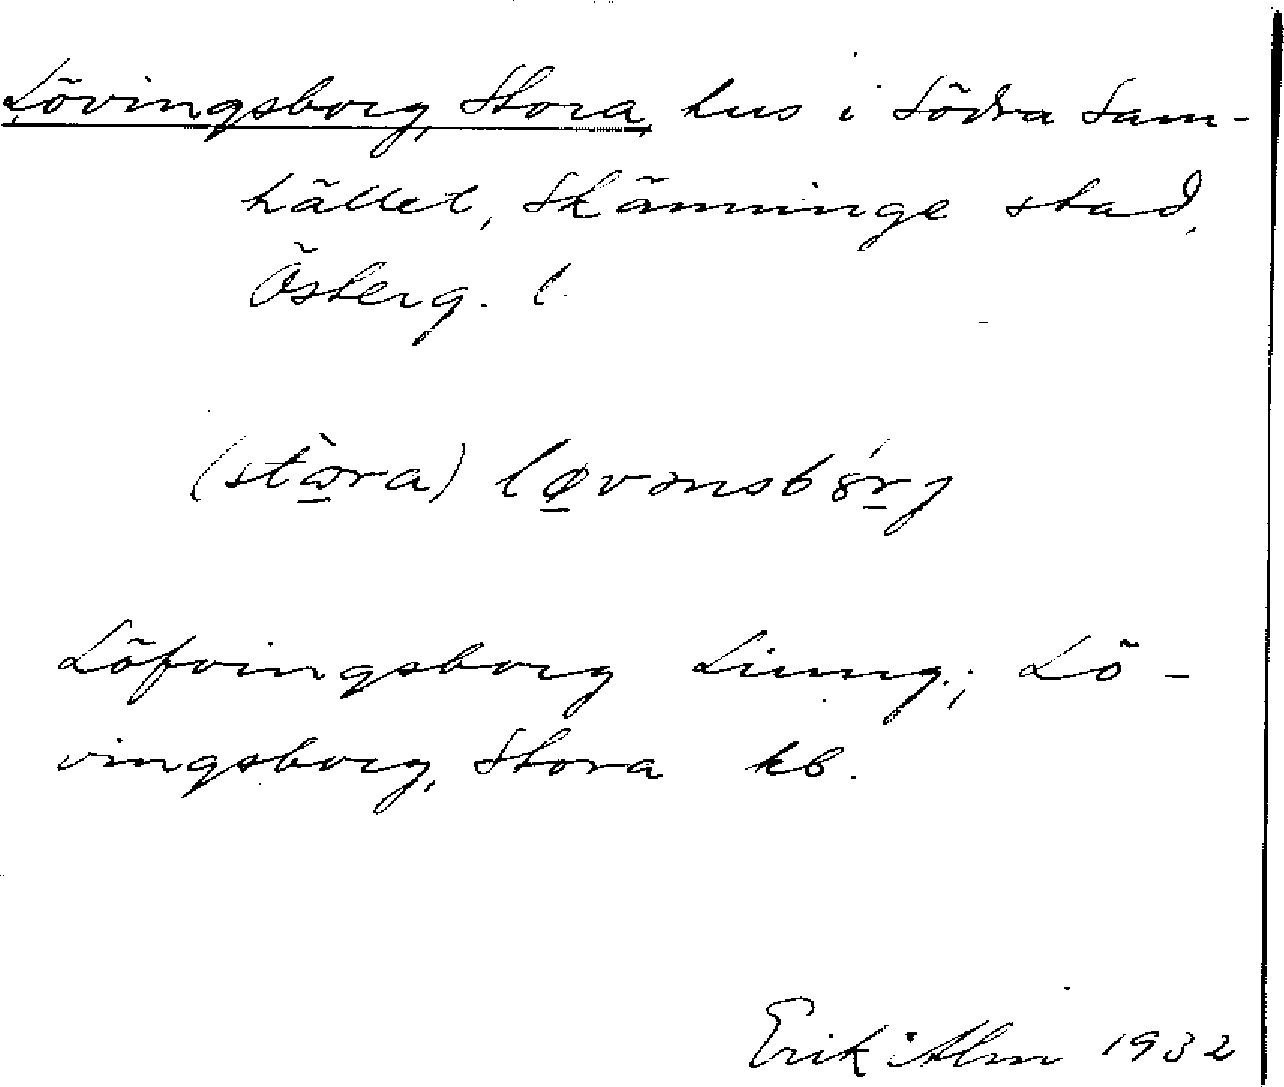 Lövingsborg, Stora, hus i Södra Sam-
hället, Skänninge stad,
Österg. l.
(stò̱ra) lø̱vənsbó̱rg
Löfvingsborg Ljung.; Lö-
vingsborg, Stora kb.
Erik Alm 1932